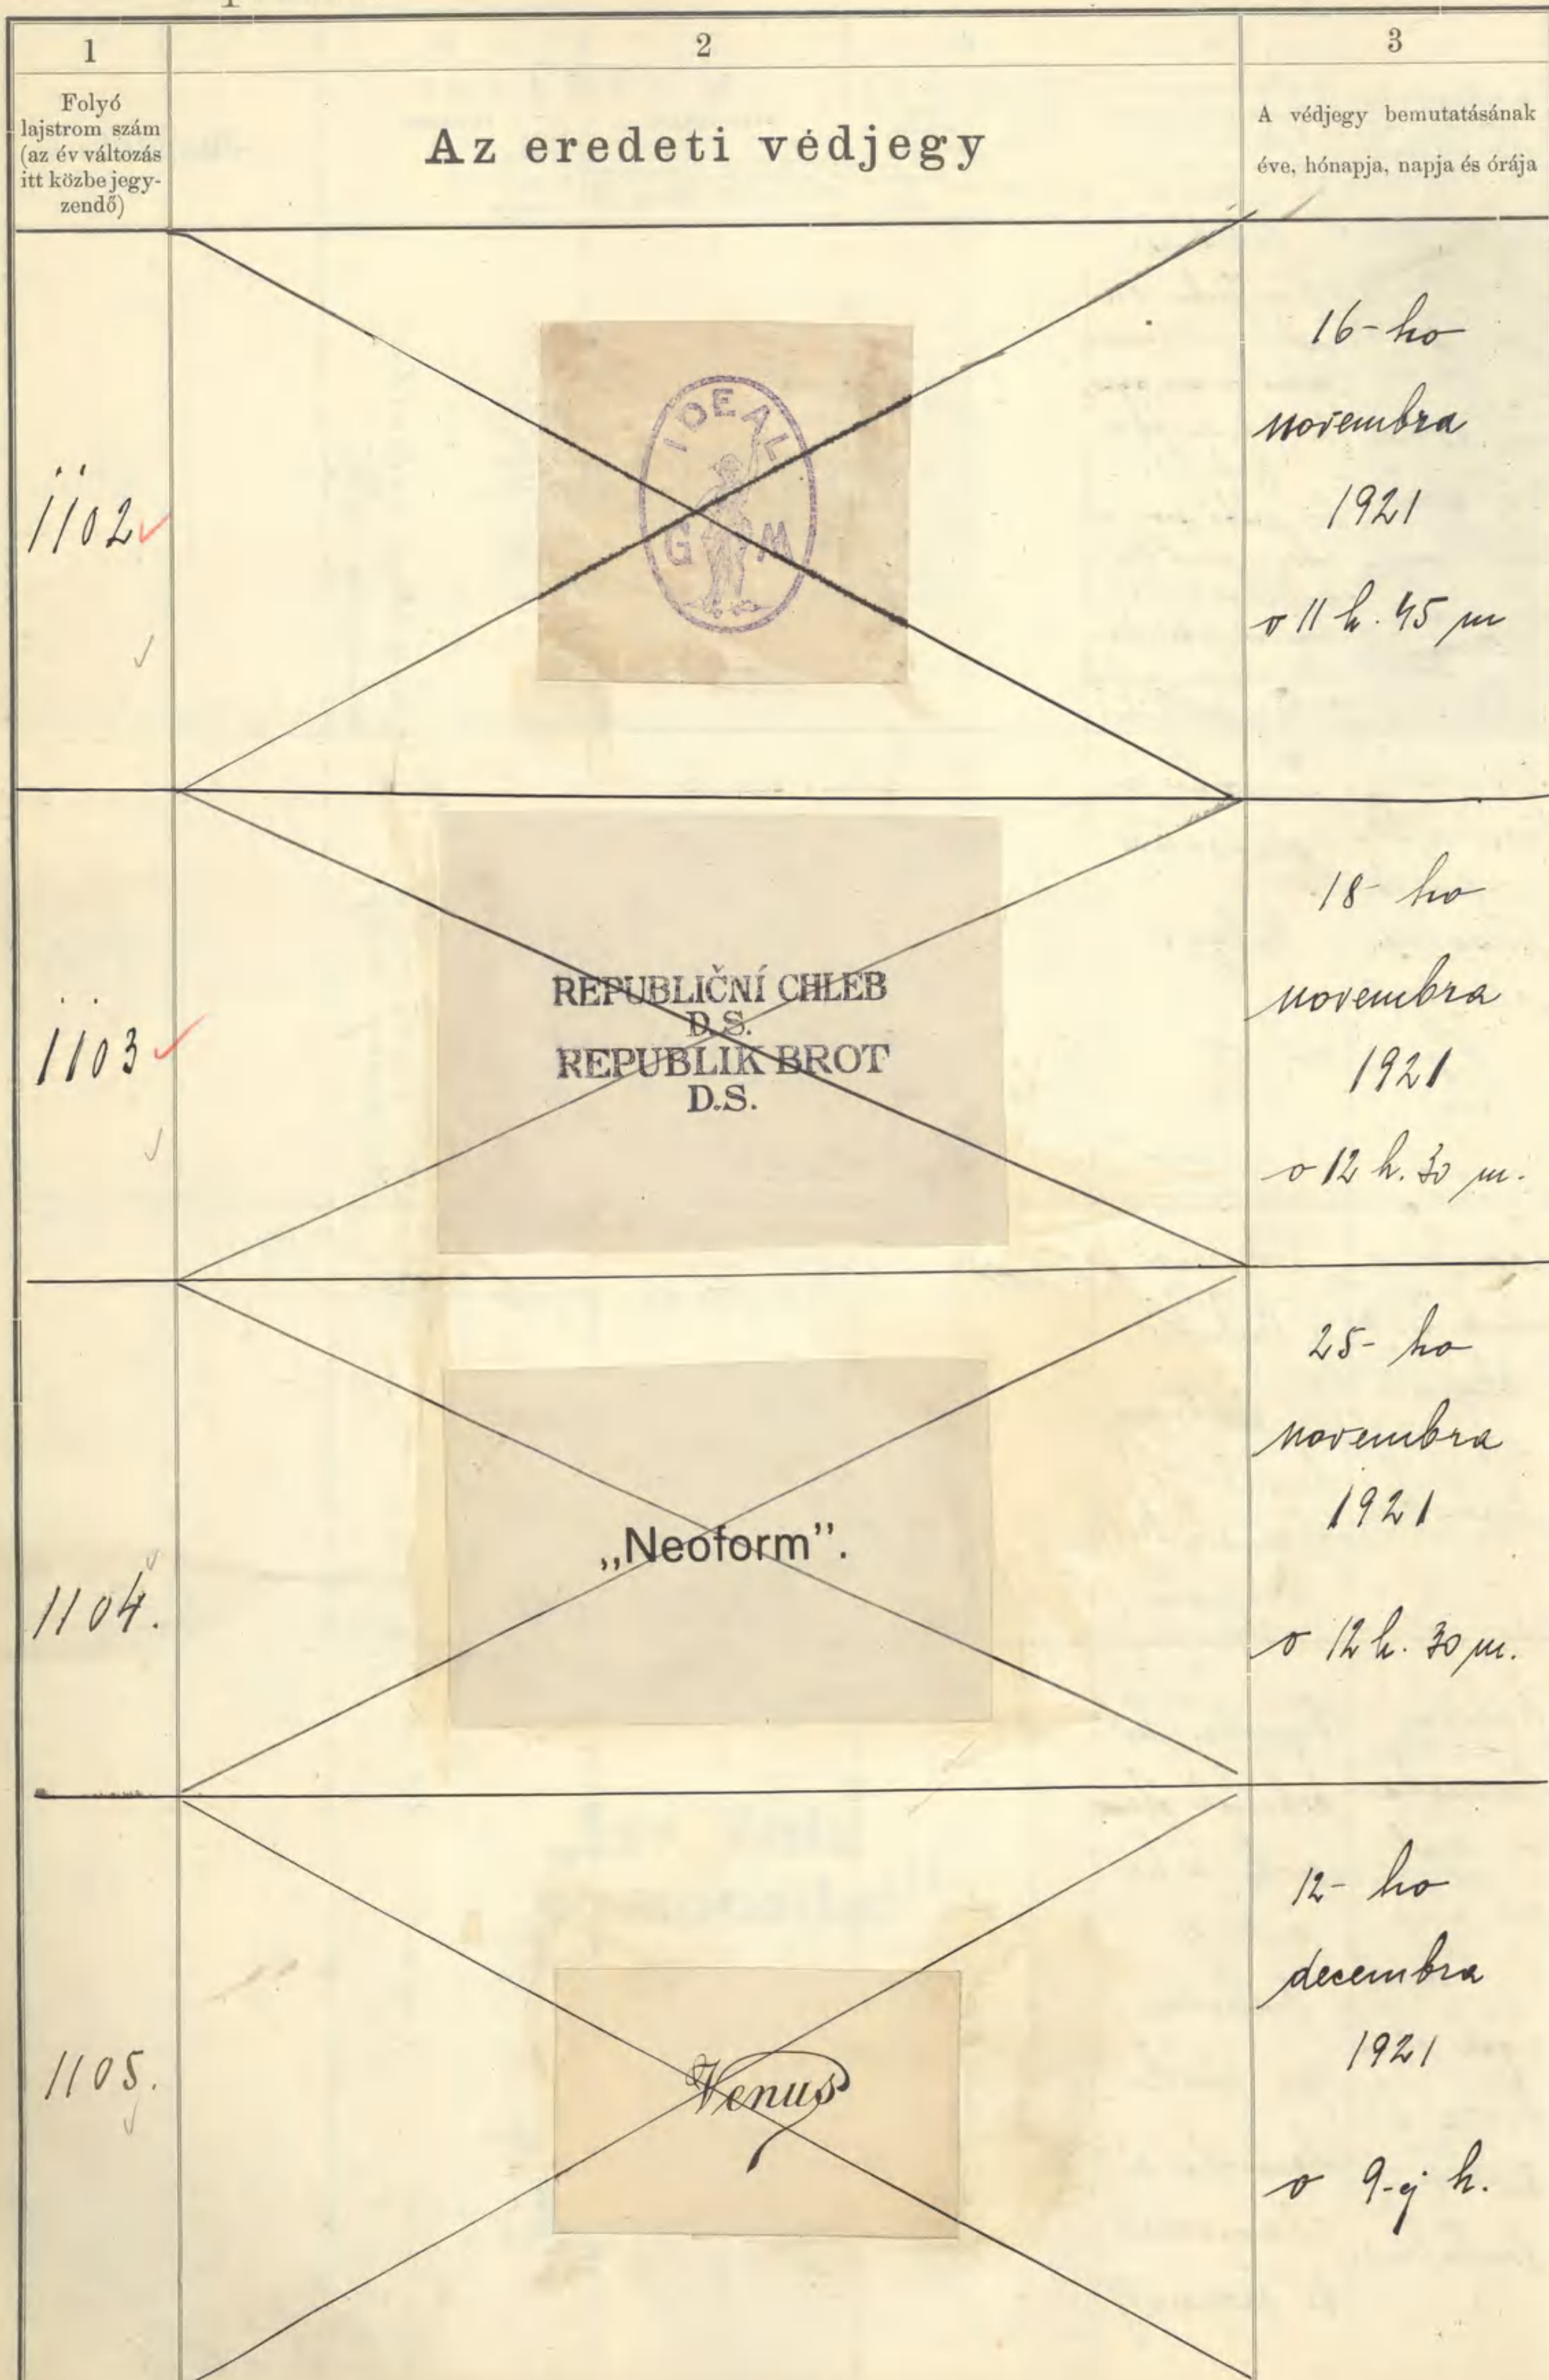 1
2
3
Folyó
lajstrom szám
(az év változás
itt közbe jegy-
zendő)
Az eredeti védjegy
A védjegy bemutatásának
éve, hónapja, napja és órája
1102
IDEAL
G M
16-ho
novembra
1921
o 11 h. 45 m
1103
REPUBLIČNÍ CHLEB
D.S.
REPUBLIK BROT
D.S.
18-ho
novembra
1921
o 12 h. 30 m.
1104.
„Neoform”.
25-ho
novembra
1921
o 12 h. 30 m.
1105.
Venus
12-ho
decembra
1921
o 9-ej h.